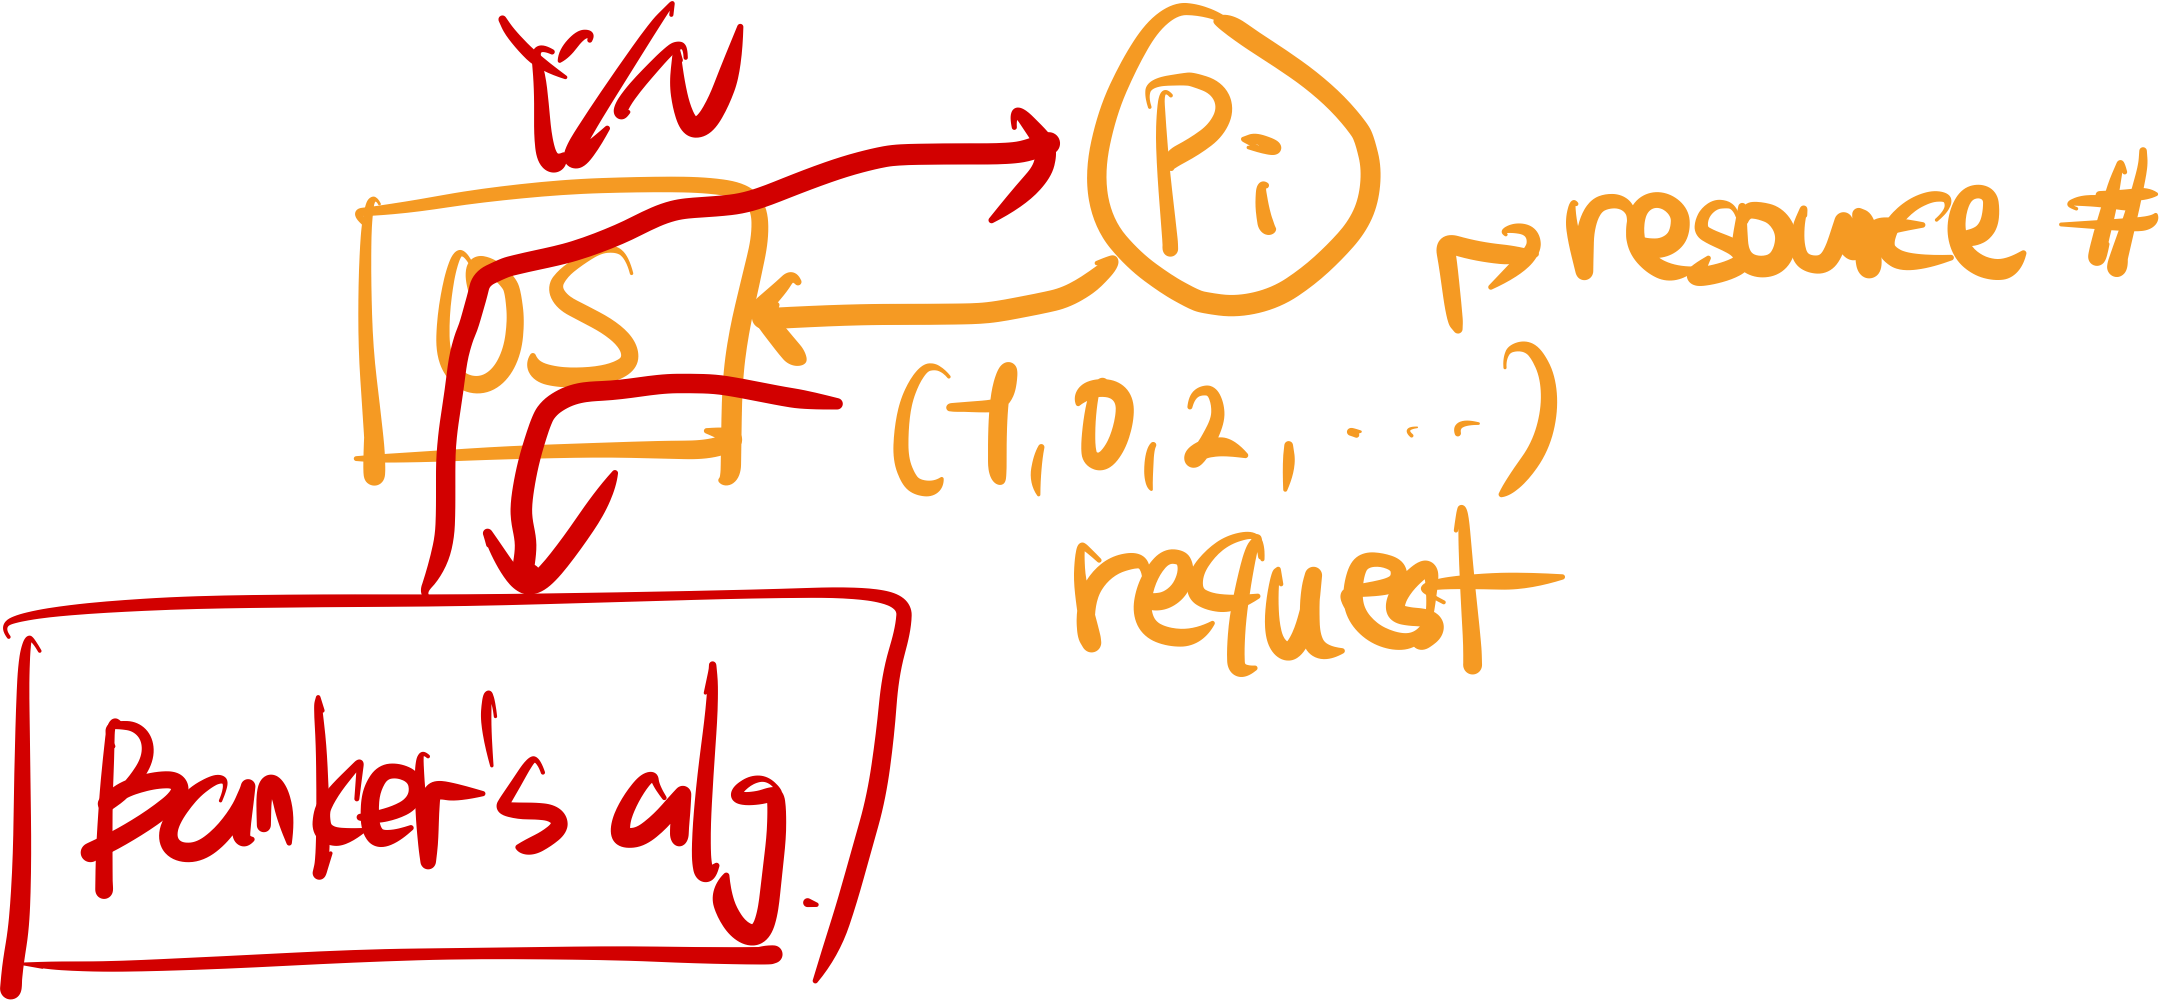 Y/N
Pi
resource #
OS
(1, 0, 2, ...)
request
Banker's alg.